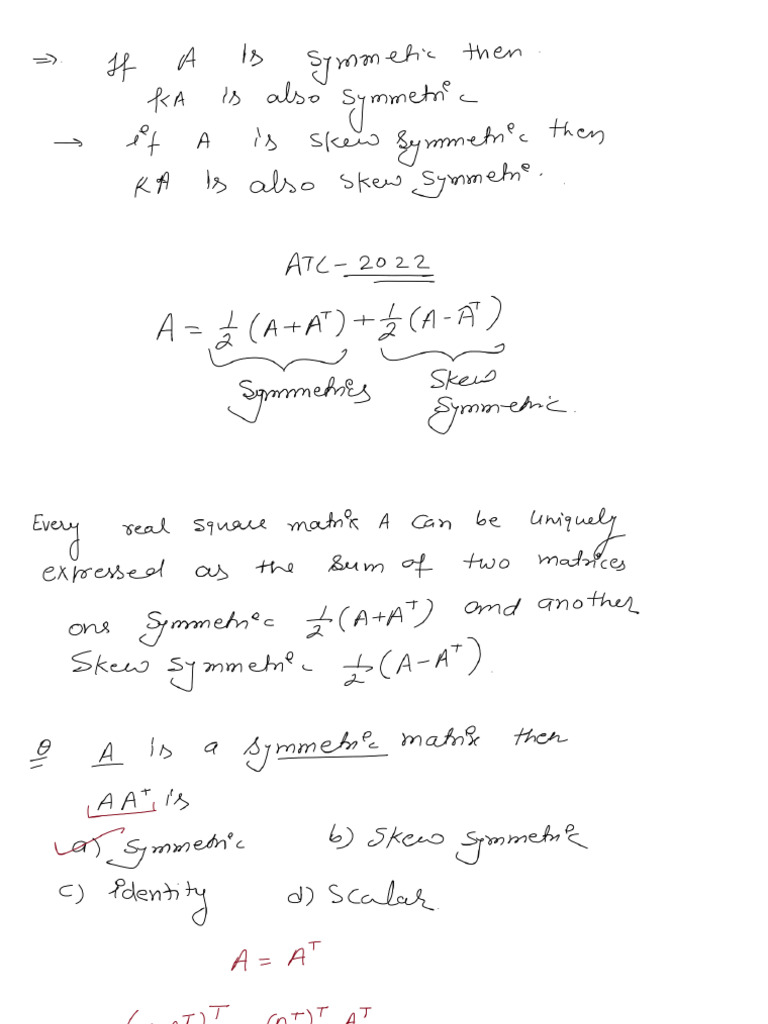 ⇒ If A is Symmetic then
KA is also Symmetric
→ if A is skew Symmetric then
KA is also skew symmetric.
ATC - 2022
A = 1/2 (A + Aᵀ) + 1/2 (A - Aᵀ)
Symmetrics Skew
Symmetric.
Every real square matrix A can be uniquely
expressed as the sum of two matrices
one Symmetric 1/2 (A+Aᵀ) and another
Skew symmetric 1/2 (A-Aᵀ).
Q A is a symmetric matrix then
AAᵀ is
a) Symmetric b) Skew symmetric
c) identity d) Scalar
A = Aᵀ